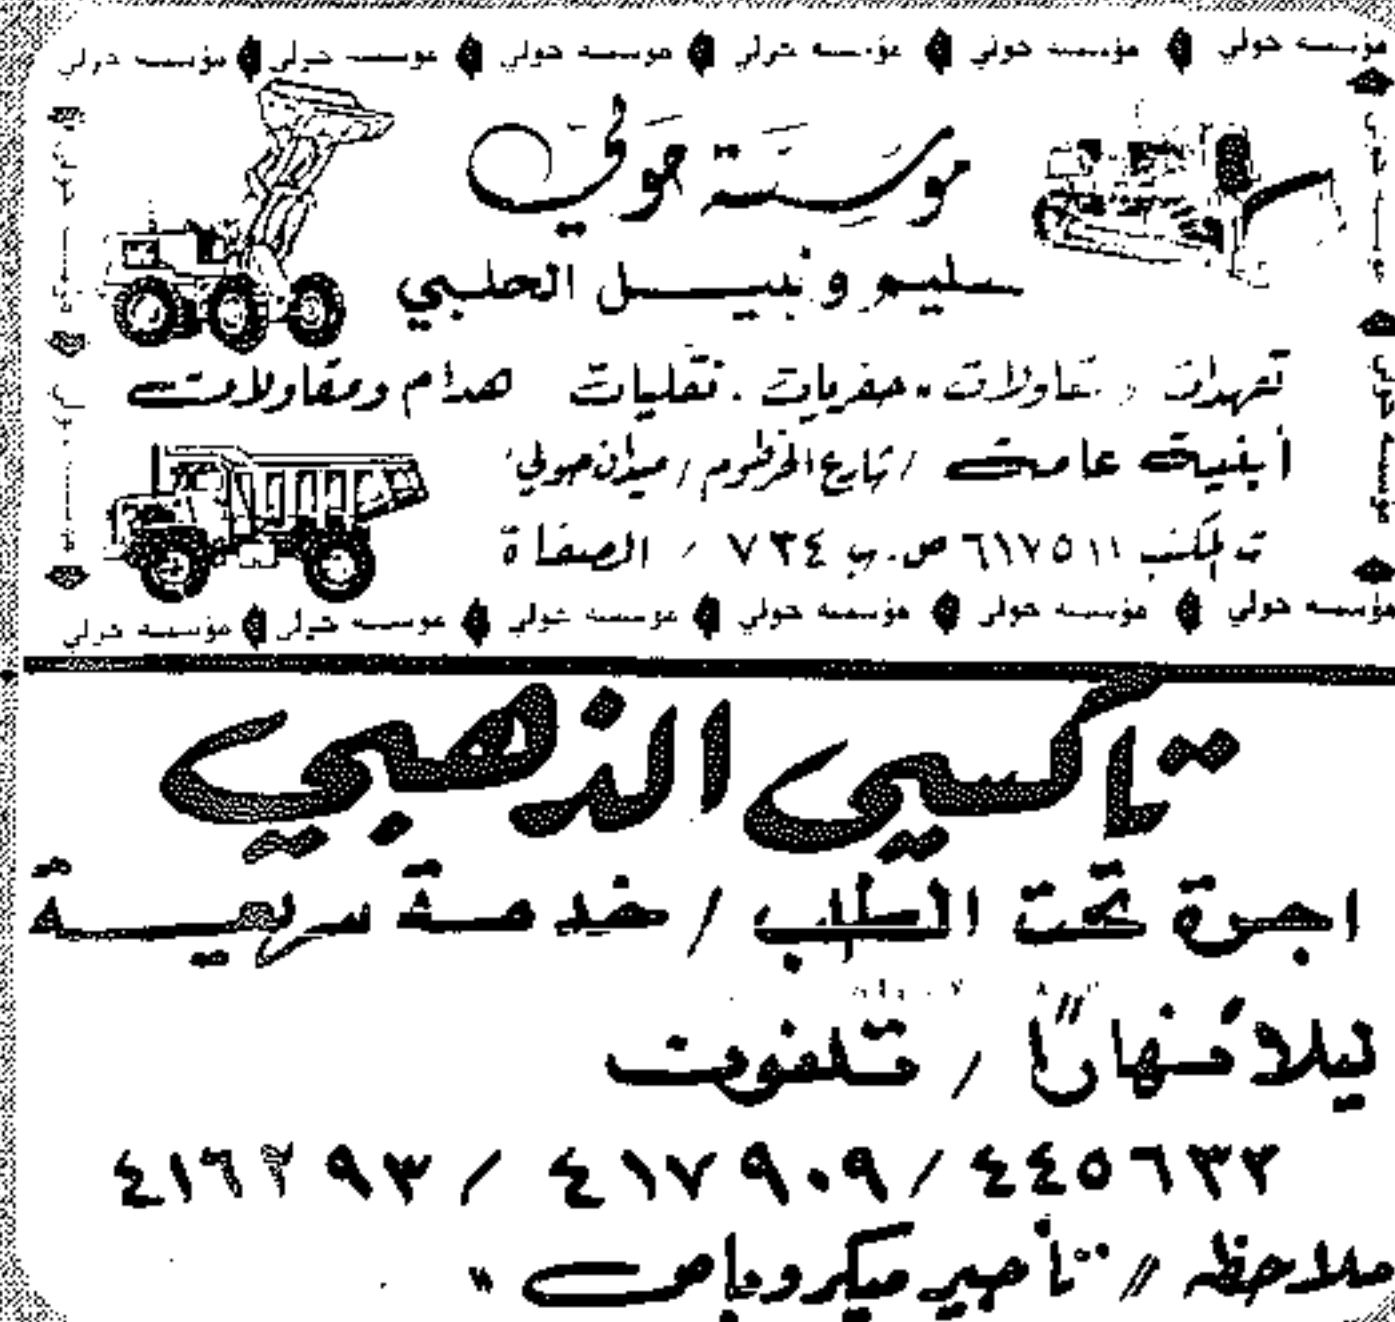 مؤسسه حولي مؤسسه حولي مؤسسه حولي مؤسسه حولي مؤسسه حولي مؤسسه حولي
مؤسسة حولي
سليم ونبيل الحلبي
تعهدات ومقاولات - حفريات . نقليات هدام ومقاولات
أبنية عامة / شارع الخرطوم / ميدان حولي
ت المكتب ٦١٧٥١١ ص.ب ٧٣٤ / الصفاة
مؤسسه حولي مؤسسه حولي مؤسسه حولي مؤسسه حولي مؤسسه حولي مؤسسه حولي
تاكسي الذهبي
اجرة تحت الطلب / خدمة سريعة
ليلاً نهاراً / تلفون
٤٤٥٦٣٢ / ٤١٧٩٠٩ / ٤١٦٢٩٣
ملاحظه // "تأجير ميكروباص"